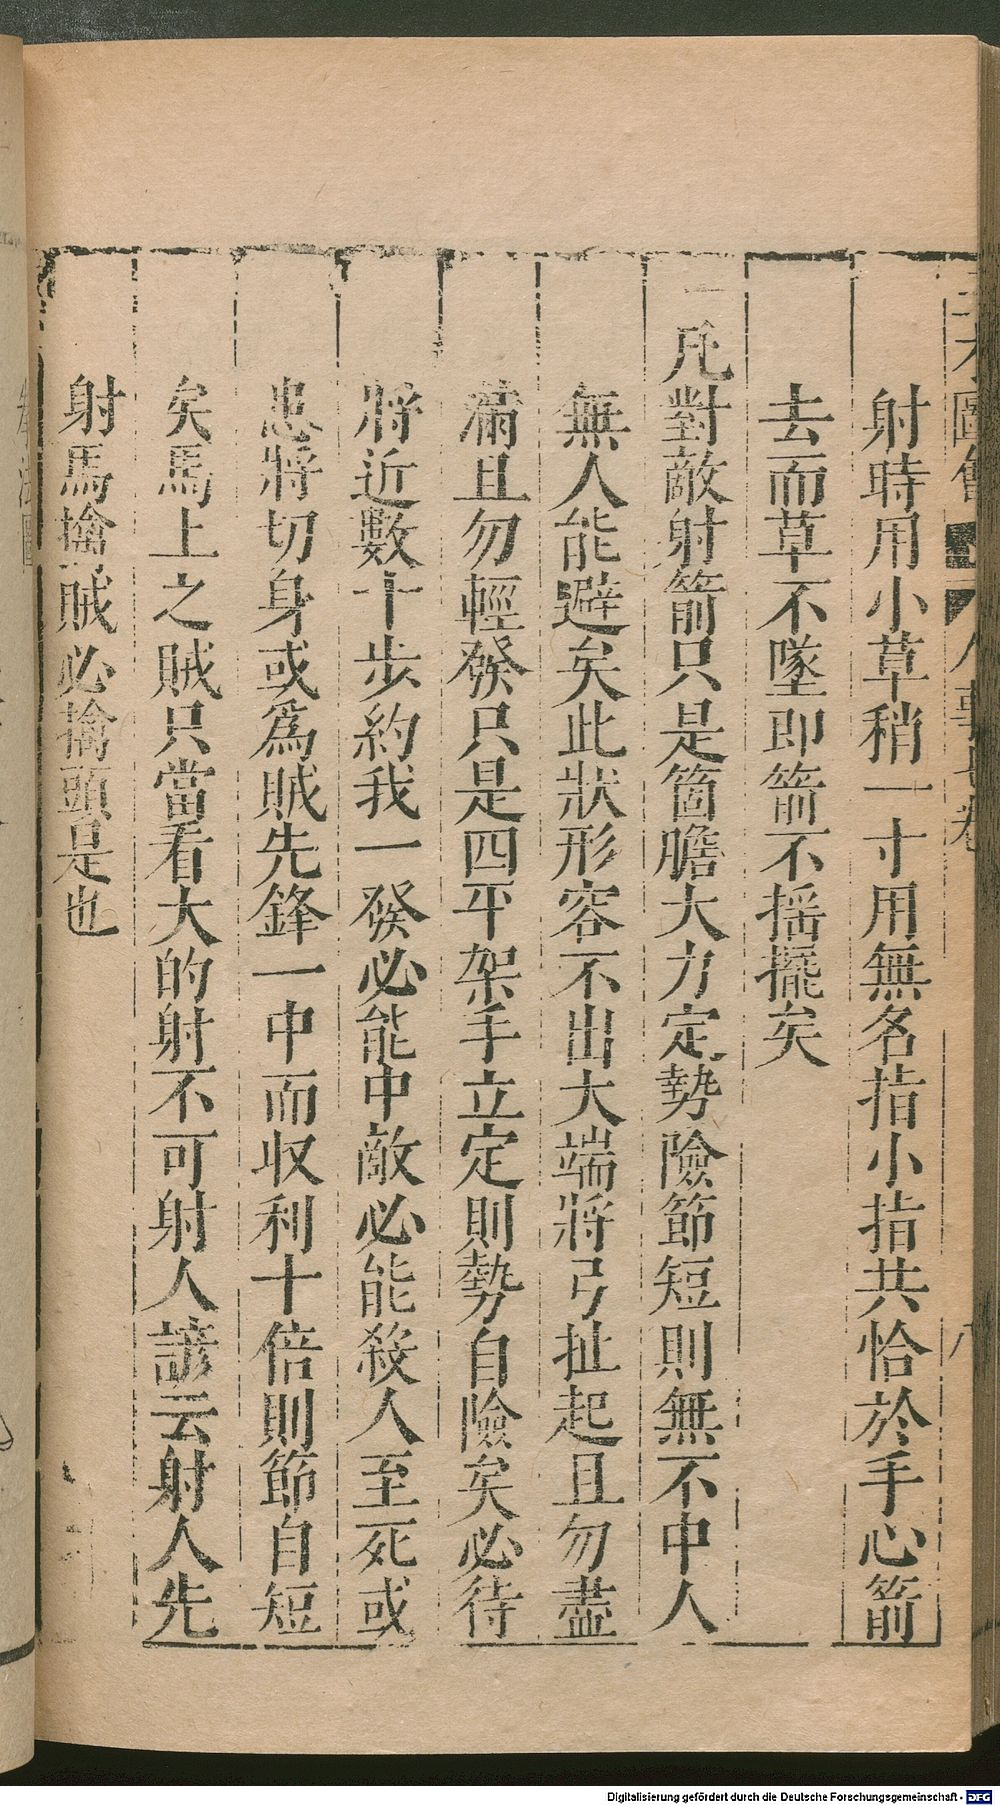 射時用小草稍一寸用無名指小指共恰於手心箭
去而草不墜即箭不搖擺矣
一凡對敵射箭只是箇膽大力定勢險節短則無不中人
無人能避矣此狀形容不出大端將弓扯起且勿盡
滿且勿輕發只是四平架手立定則勢自險矣必待
將近數十步約我一發必能中敵必能殺人至死或
患將切身或爲賊先鋒一中而収利十倍則節自短
矣馬上之賊只當看大的射不可射人諺云射人先
射馬擒賊必擒頭是也
Digitalisierung gefördert durch die Deutsche Forschungsgemeinschaft - DFG